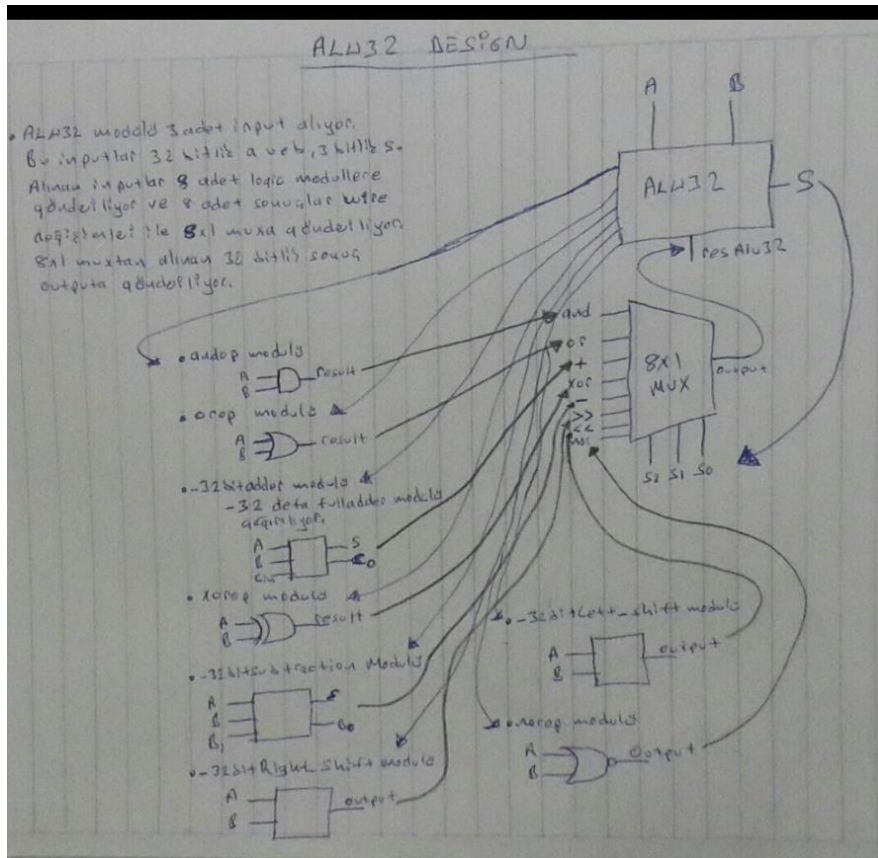 ALU32 DESIGN
• ALU32 modülü 3 adet input alıyor.
Bu inputlar 32 bitlik a ve b, 3 bitlik s.
Alınan inputlar 8 adet logic modüllere
gönderiliyor ve 8 adet sonuçlar wire
değişkenleri ile 8x1 muxa gönderiliyor.
8x1 muxtan alınan 32 bitlik sonuç
outputa gönderiliyor.
A B
ALU32
S
resAlu32
and
or
+
xor
-
>>
<<
nor
8x1
MUX
output
S2 S1 S0
• andop modülü
A
B
result
• orop modülü
A
B
result
• -32bitadder modülü
-32 defa fulladder modülü
A
B
Cin
S
Co
• xorop modülü
A
B
result
• -32bitSubtraction Modülü
A
B
Bi
Bo
• -32bitRight Shift modülü
A
B
output
• -32bitLeft-shift modülü
A
B
output
• norop modülü
A
B
output